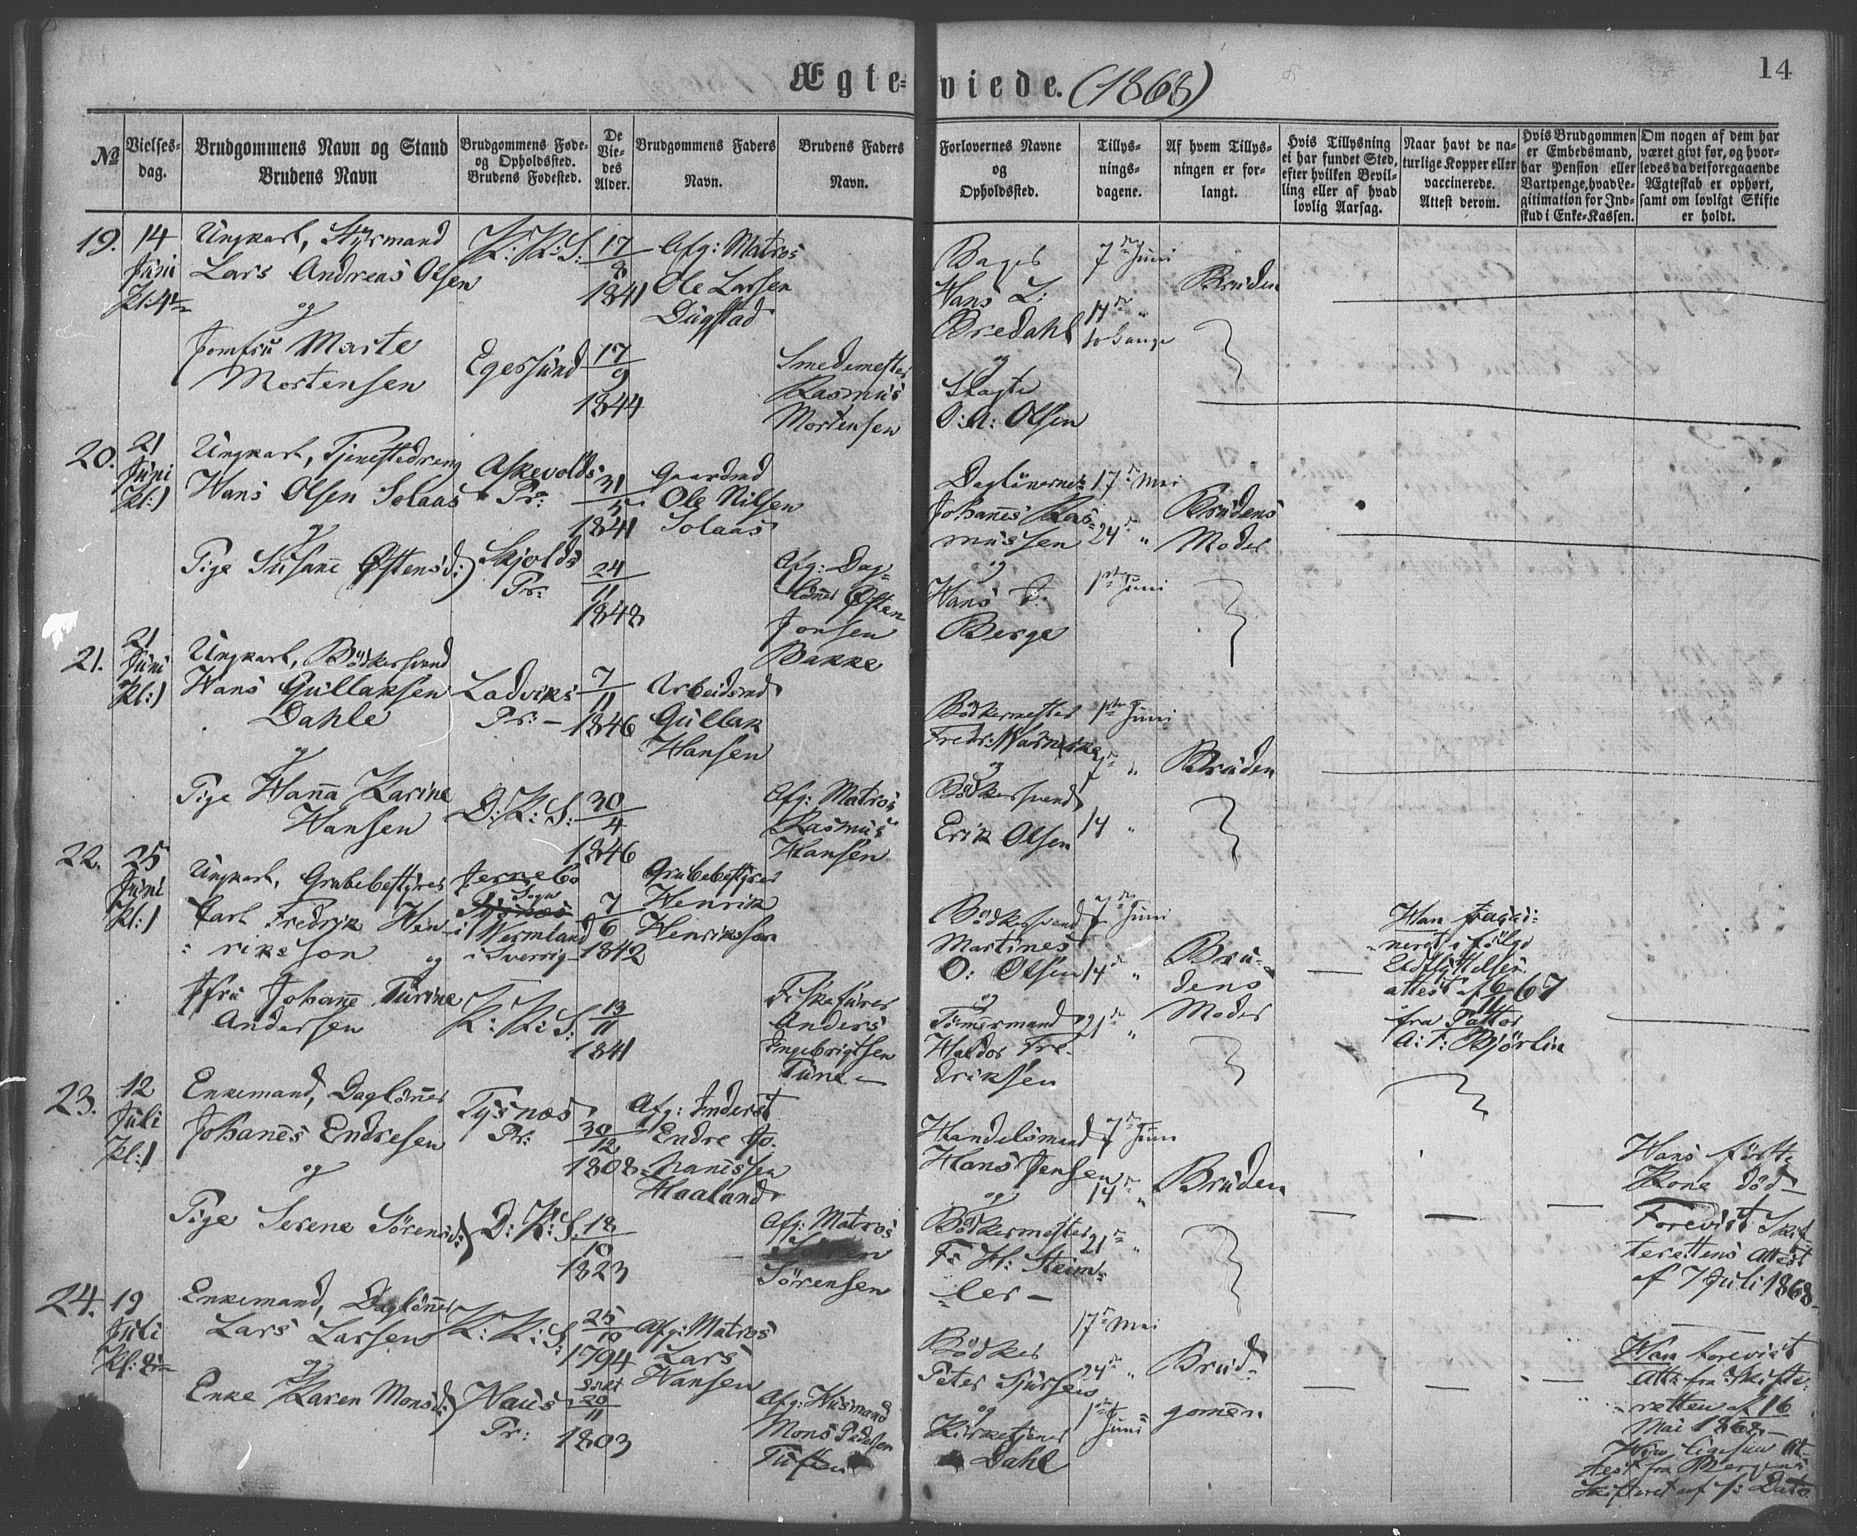 Ægte=viede. (1868)
14
No
Vielses-
dag.
Brudgommens Navn og Stand
Brudens Navn
Brudgommens Føde-
og Opholdssted.
Brudens Fødested.
De
Vie-
des
Alder.
Brudgommens Faders
Navn.
Brudens Faders
Navn.
Forlovernes Navne
og
Opholdssted.
Tillys-
nings-
dagene.
Af hvem Tillys-
ningen er for-
langt.
Hvis Tillysning
ei har fundet Sted,
efter hvilken Bevil-
ling eller af hvad
lovlig Aarsag.
Naar havt de na-
turlige Kopper eller
vaccinerede.
Attest derom.
Hvis Brudgommen
er Embedsmand,
har Pension eller
Vartpenge, hvad Le-
gitimation for Ind-
skud i Enke-Kassen.
Om nogen af dem har
været givt før, og hvor-
ledes da det foregaaende
Ægteskab er ophørt,
samt om lovligt Skifte
er holdt.
19.
14
Juni
Kl: 4½
Ungkarl, Styrmand
Lars Andreas Olsen
og
Jomfru Marte
Mortensen
K: K: S:
Egersund
17/8
1841
17/9
1844
Afg: Matros
Ole Larsen
Dugstad
Smedemester
Rasmus
Mortensen
Bager
Hans L:
Bredahl
og
O: A: Olsen
7de Juni
14de "
to Gange
Bruden
20.
21
Juni
Kl: 1
Ungkarl, Tjenestedreng
Hans Olsen Solaas
og
Pige Susane Østensd:
Askevolds
Pr:
Skjolds
Pr:
31/5
1841
24/11
1848
Gaardmd
Ole Nilsen
Solaas
Afg: Dag-
lønner Østen
Jonsen
Bakke
Daglønnerne
Johannes Ras-
mussen
og
Hans
Berge
17de Mai
24de "
1ste Juni
Brudens
Moder
21.
21
Juni
Kl: 1
Ungkarl, Bødkersvend
Hans Gullaksen
Dahle
og
Pige Hanna Karine
Hansen
Ladviks
Pr: -
D: K: S:
7/11
1846
30/4
1846
Arbeidsmd
Gullak
Hansen
Afg: Matros
Rasmus
Hansen
Bødkermester
Fredr: Warnecke
og
Bødkersvend
Erik Olsen
1ste Juni
7de "
14 "
Bruden
22.
25
Juni
Kl: 1
Ungkarl, Grubebestyrer
Carl Fredrik Hen-
rikson
og
Jfru Johanne Turine
Andersen
Jernebo
Sogn
i Wermland
i Sverrig
K: K: S:
7/6
1842
13/11
1841
Grubebestyrer
Henrik
Henriksson
Fiskefører
Anders
Ingebrigtsen
Tune -
Bødkersvend
Martines
O: Olsen
og
Tømmermand
Haldor Fre-
driksen
7de Juni
14de "
21de "
Bru-
dens
Moder
Han
i følge
Udflyttelses-
attest af 6/11 67
fra Pastor
A: F: Björlin
23.
12
Juli
Kl: 1
Enkemand, Daglønner
Johannes Endresen
og
Pige Serene Sørensd:
Tysnæs
Pr:
D: K: S:
30/12
1808
18/10
1823
Afg: Inderst
Endre Jo-
hannessen
Haaland
Afg: Matros
Søren
Sørensen
Handelsmand
Hans Jensen
og
Bødkermester
F: H: Steim-
ler -
7de Juni
14de "
21de "
Bruden
Hans første
Kone død
Forevist Skif-
terettens Attest
af 7 Juli 1868
24.
19
Juli
Enkemand, Daglønner
Lars Larsen
og
Enke Karen Monsd:
K: K: S:
Haus
Pr:
25/10
1794
døbt
20/11
1803
Afg: Matros
Lars
Hansen
Afg: Husmand
Mons Pedersen
Tuften
Bødker
Peter Sjursen
og
Kirketjener
Dahl
17de Mai
24de "
1ste Juni
Brud-
gomen
Han forevist
Att: fra Skifte-
retten af 16
Mai 1868 -
Hun ligesaa At-
test fra Bergens
Skifteret af s: Dato